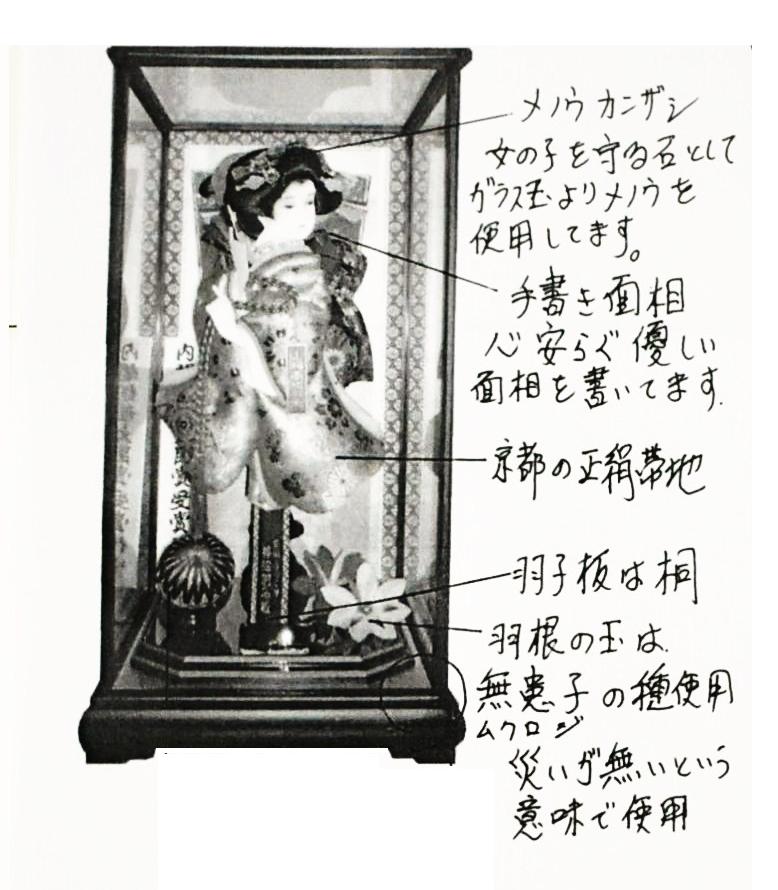 メノウカンザシ
女の子を守る石として
ガラス玉よりメノウを
使用してます。
手書き面相
心安らぐ優しい
面相を書いてます.
京都の正絹帯地
羽子板は桐
羽根の玉は
無患子の種使用
ムクロジ
災いが無いという
意味で使用
内
賞受賞